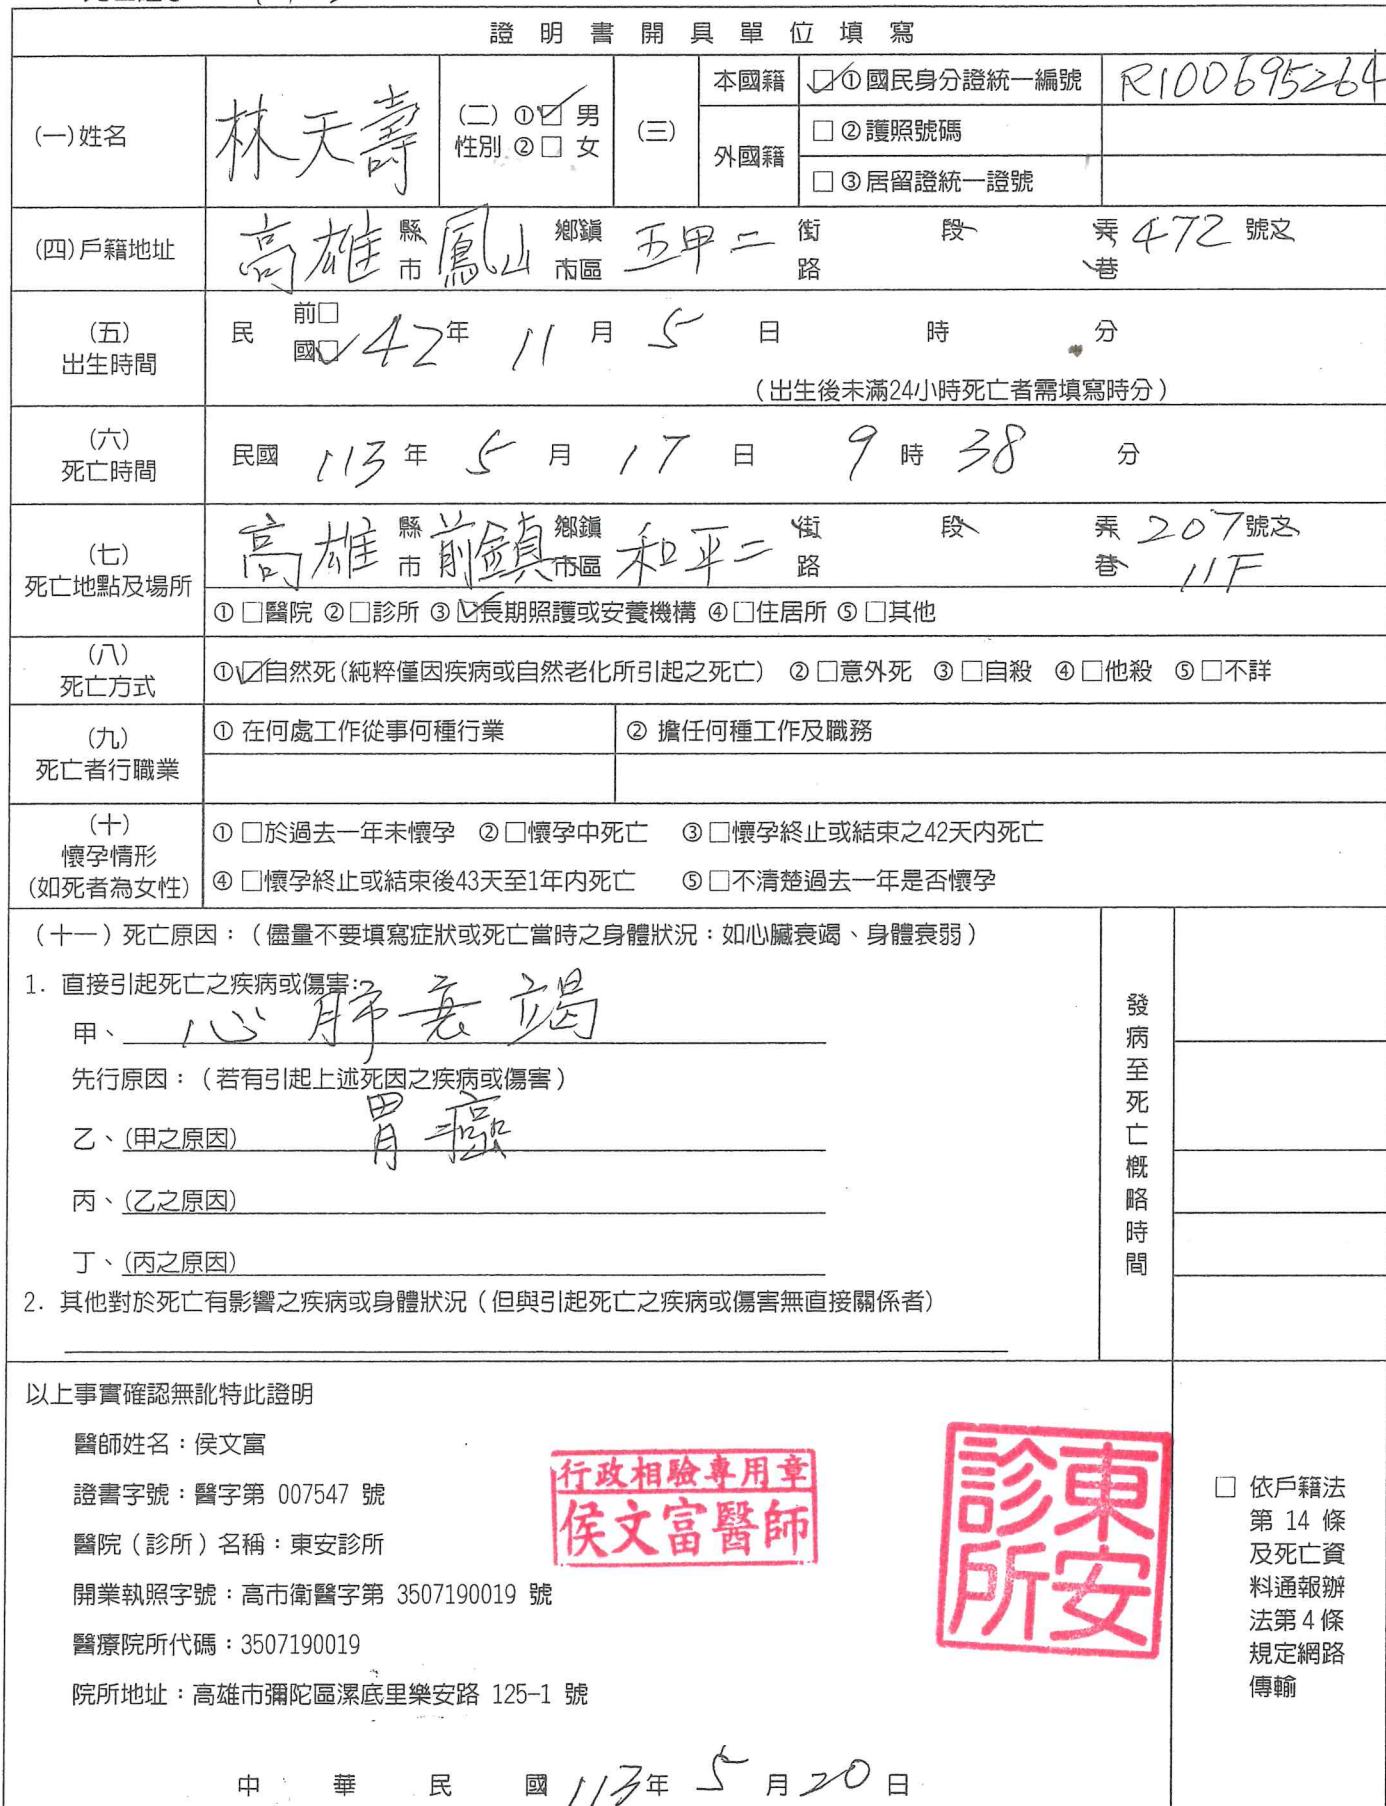 證明書開具單位填寫
(一)姓名 林天壽 (二)性別 ①☑男 ②□女 (三) 本國籍 ☑①國民身分證統一編號 R100695264
外國籍 □②護照號碼
□③居留證統一證號
(四)戶籍地址 高雄縣市 鳳山鄉鎮市區 五甲二街路 段 弄巷 472 號之
(五)出生時間 民 前□ 國☑ 42年 11月 5日 時 分
(出生後未滿24小時死亡者需填寫時分)
(六)死亡時間 民國 113年 5月 17日 9時 38分
(七)死亡地點及場所 高雄縣市 前鎮鄉鎮市區 和平二街路 段 弄巷 207號之 11F
①□醫院 ②□診所 ③☑長期照護或安養機構 ④□住居所 ⑤□其他
(八)死亡方式 ①☑自然死(純粹僅因疾病或自然老化所引起之死亡) ②□意外死 ③□自殺 ④□他殺 ⑤□不詳
(九)死亡者行職業 ① 在何處工作從事何種行業 ② 擔任何種工作及職務
(十)懷孕情形(如死者為女性) ①□於過去一年未懷孕 ②□懷孕中死亡 ③□懷孕終止或結束之42天內死亡
④□懷孕終止或結束後43天至1年內死亡 ⑤□不清楚過去一年是否懷孕
(十一)死亡原因:(儘量不要填寫症狀或死亡當時之身體狀況:如心臟衰竭、身體衰弱)
發病至死亡概略時間
1. 直接引起死亡之疾病或傷害:
甲、心肺衰竭
先行原因:(若有引起上述死因之疾病或傷害)
乙、(甲之原因) 胃癌
丙、(乙之原因)
丁、(丙之原因)
2. 其他對於死亡有影響之疾病或身體狀況(但與引起死亡之疾病或傷害無直接關係者)
以上事實確認無訛特此證明
醫師姓名:侯文富
證書字號:醫字第 007547 號
醫院(診所)名稱:東安診所
開業執照字號:高市衛醫字第 3507190019 號
醫療院所代碼:3507190019
院所地址:高雄市彌陀區漯底里樂安路 125-1 號
行政相驗專用章
侯文富醫師
東安診所
□ 依戶籍法
第 14 條
及死亡資
料通報辦
法第4條
規定網路
傳輸
中華民國 113年 5月 20日